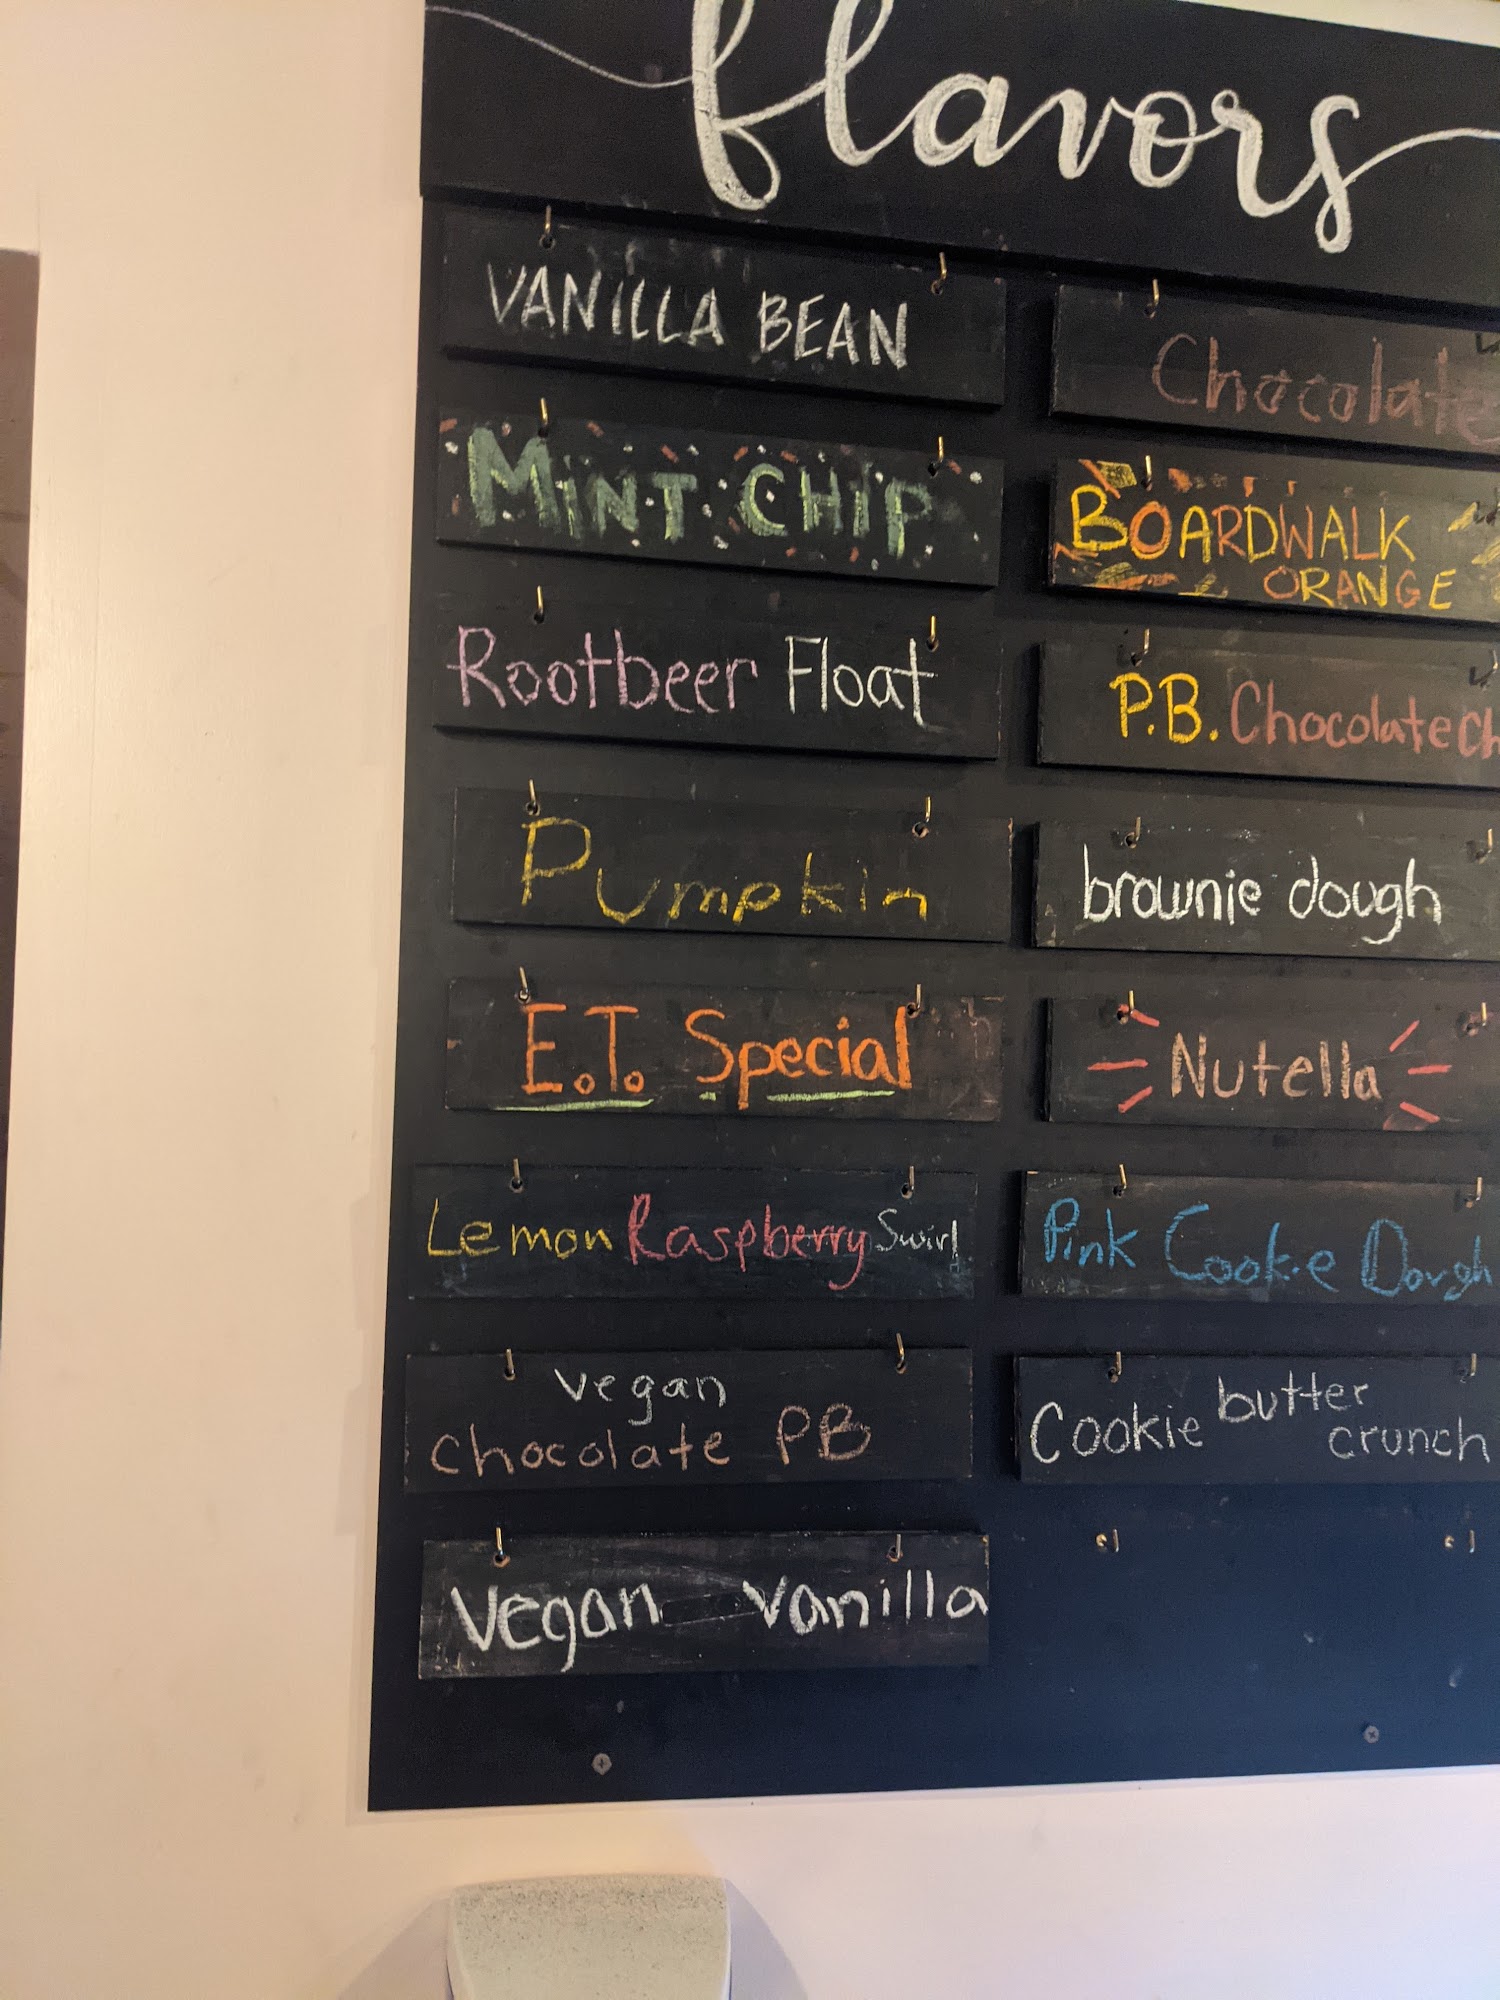 flavors
VANILLA BEAN
Chocolate
MINT CHIP
BOARDWALK
ORANGE
Rootbeer Float
P.B. Chocolate Ch
Pumpkin
brownie dough
E.T. Special
Nutella
Lemon Raspberry Swirl
Pink Cookie Dough
vegan
Chocolate PB
Cookie butter
crunch
Vegan vanilla